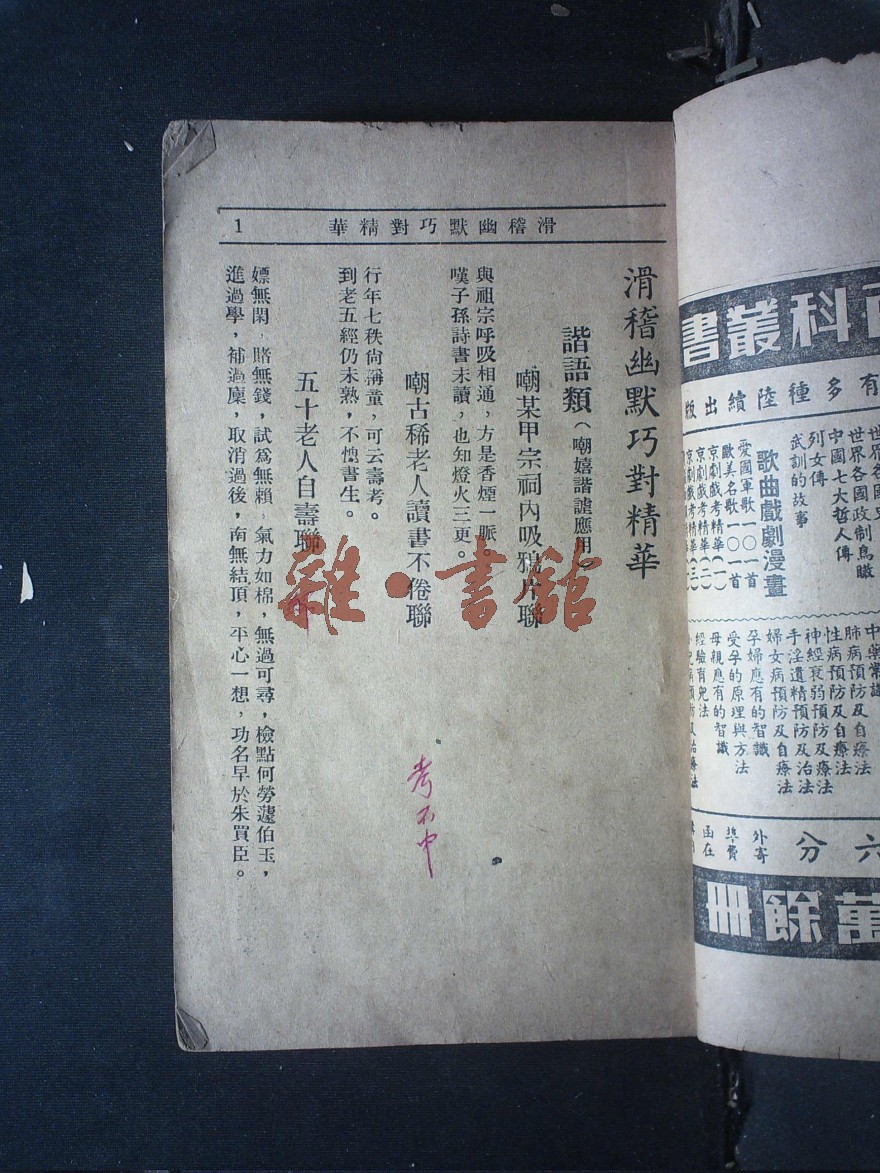 滑稽幽默巧對精華
1
滑稽幽默巧對精華
諧語類（嘲嬉諧謔應用）
嘲某甲宗祠內吸鴉片聯
與祖宗呼吸相通，方是香煙一脈。
嘆子孫詩書未讀，也知燈火三更。
嘲古稀老人讀書不倦聯
行年七秩尙稱童，可云壽考。
到老五經仍未熟，不愧書生。
五十老人自壽聯
嫖無閑，賭無錢，試爲無賴，氣力如棉，無過可尋，檢點何勞蘧伯玉，
進過學，補過廩，取消過後，南無結頂，平心一想，功名早於朱買臣。
考不中
雜·書館
科叢書
有多種陸續出版
世界各國政制鳥瞰
中國七大哲人傳
列女傳
武訓的故事
歌曲戲劇漫畫
愛國軍歌一〇一首
歐美名歌一〇一首
京劇戲考精華（一）
京劇戲考精華（二）
京劇戲考精華（三）
中藥常識
肺病預防及自療法
性病預防及自療法
神經衰弱預防及療法
手淫遺精預防及治法
婦女病預防及自療法
孕婦應有的智識
受孕的原理與方法
母親應有的智識
經驗育兒法
六分
外寄
費
函
在
萬餘冊